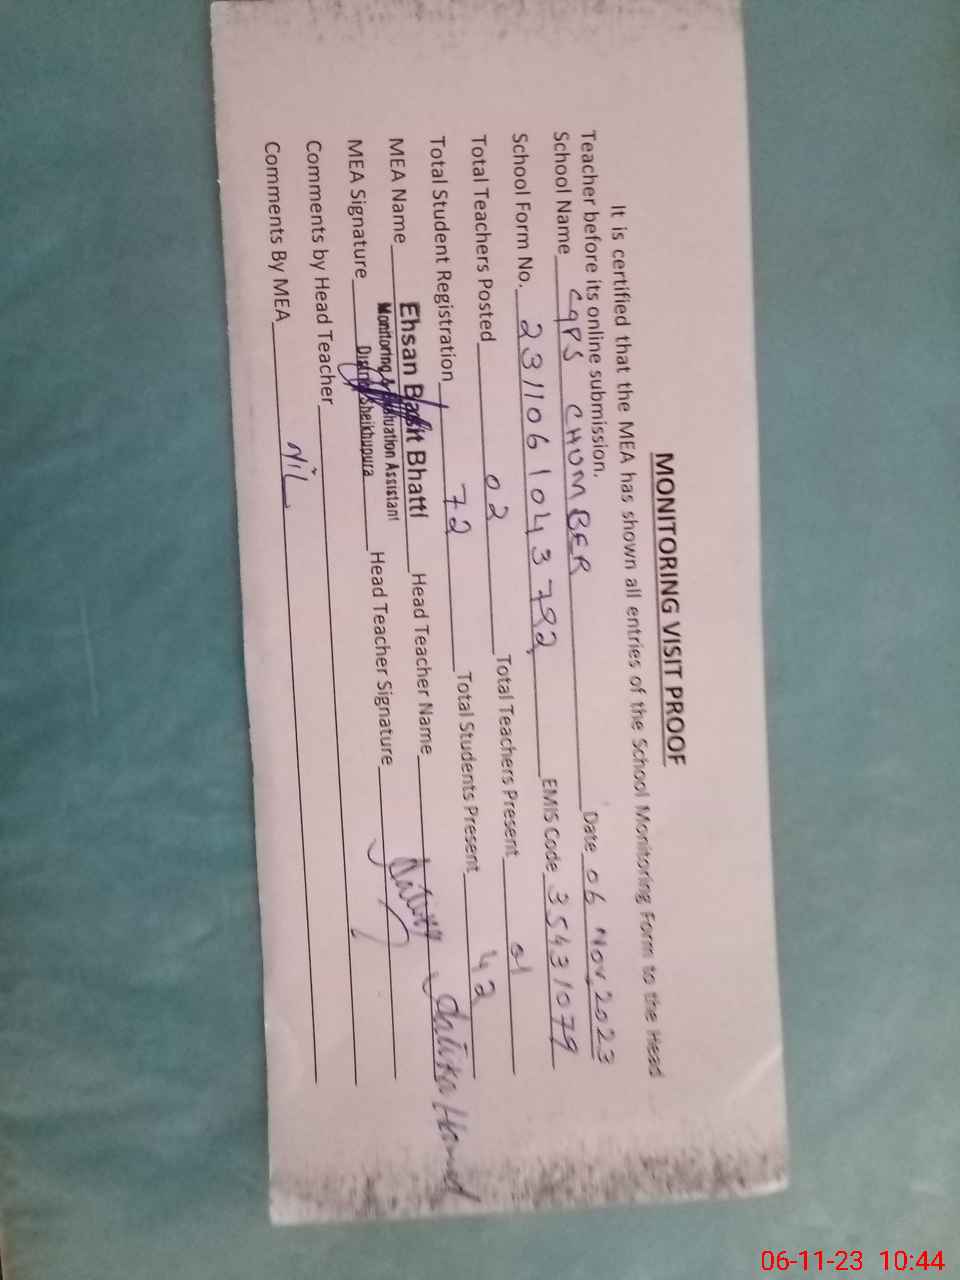 MONITORING VISIT PROOF
It is certified that the MEA has shown all entries of the School Monitoring Form to the Head
Teacher before its online submission.
School Name CGPS CHUMBER Date 06 Nov, 2023
School Form No. 231106104 3792 EMIS Code 35431079
Total Teachers Posted 02 Total Teachers Present 01
Total Student Registration 72 Total Students Present 42
MEA Name Ehsan Basit Bhatti Head Teacher Name
Monitoring & Evaluation Assistant
MEA Signature District Sheikhupura Head Teacher Signature
Comments by Head Teacher
Comments By MEA NiL
06-11-23 10:44